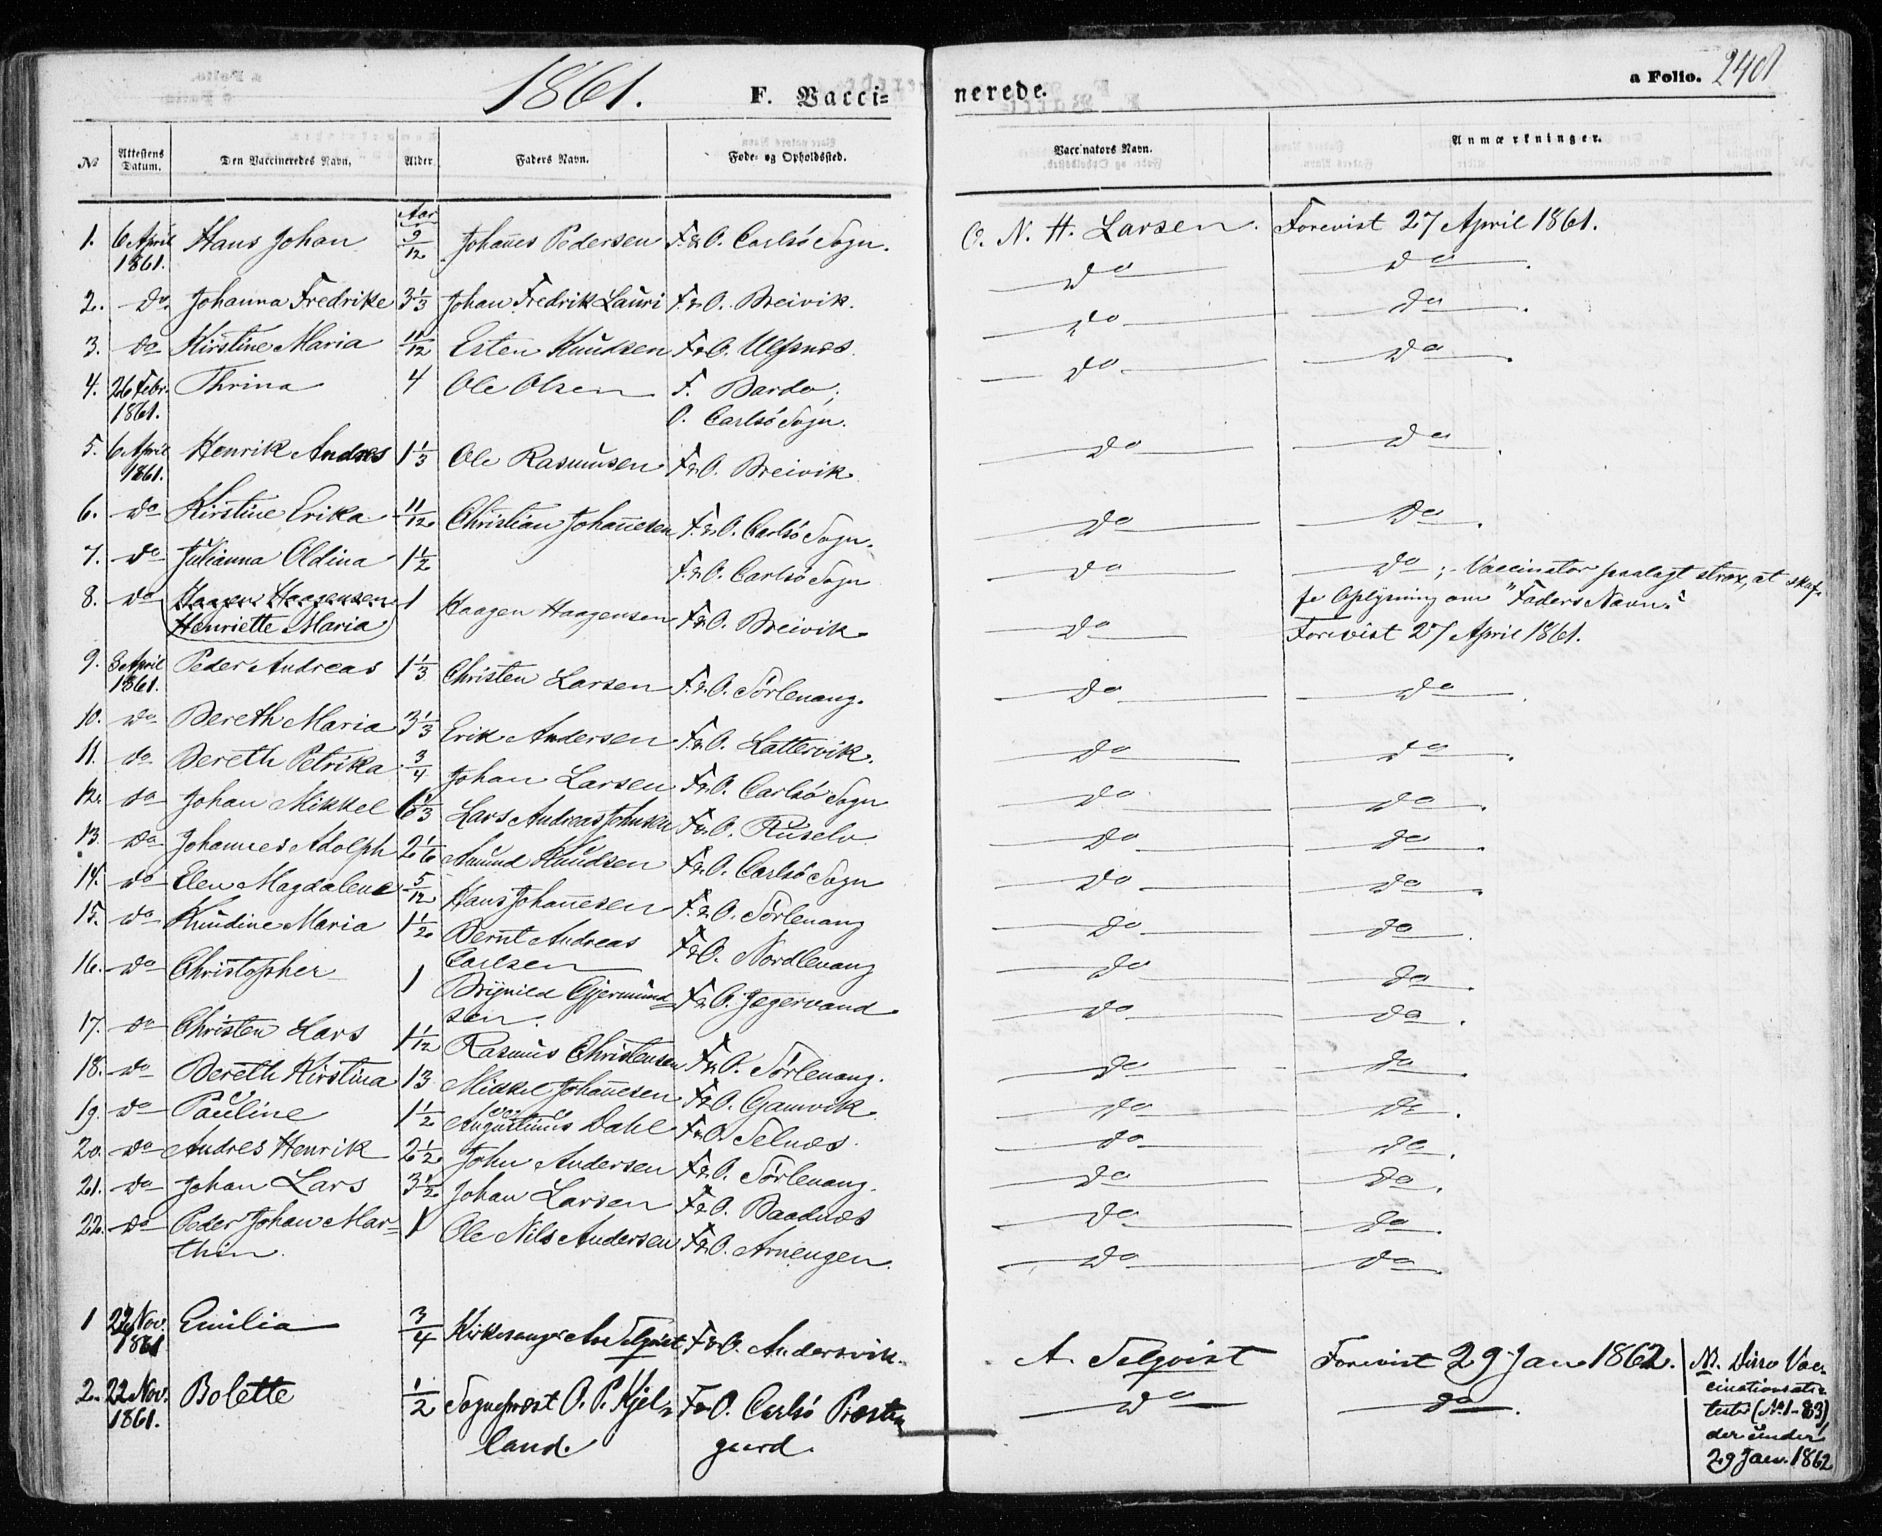 1861.
F. Vacci=
nerede.
a Folio. 240
No Attestens Datum. Den Vaccineredes Navn. Alder. Faders Navn. Føde- og Opholdssted. Vaccinators Navn. Anmærkninger.
Aar
1. 6 April 1861. Hans Johan 9/12 Johañes Pedersen F. & O. Carlsö Sogn. O. N. H. Larsen. Forevist 27 April 1861.
2. do Johanna Fredrike 3 1/3 Johan Fredrik Lauri F. & O. Breivik. do do
3. do Kirstine Maria 11/12 Esten Knudsen F & O. Ulfsnes. do do
4. 26 Febr. 1861. Thrina 4 Ole Olsen F. Bardo; do do
O. Carlsö Sogn.
5. 6 April 1861. Henrik Andres 1 1/3 Ole Rasmusen F & O. Breivik do do
6. do Kirstine Erika 11/12 Christian Johañesen F. & O. Carlsö Sogn. do do
7. do Julianna Oldina 1 1/2 F. & O. Carlsö Sogn do do; Vaccinator paalagt strax, at skaf-
fe Oplysning om "Faders Navn."
8. do Haagen Haagensen 1 Haagen Haagensen F & O. Breivik do Forevist 27 April 1861.
Henriette Maria
9. 3 April 1861. Peder Andreas 1 1/3 Christen Larsen F. & O. Sörlenang. do do
10. do Bereth Maria 3 1/3 Erik Andersen F & O. Lattervik. do do
11. do Bereth Petrika 3/4 Johan Larsen F & O. Carlsö Sogn do do
12. do Johan Mikkel 6 1/3 Lars Andreas Johnsen F & O. Ruselv do do
13. do Johannes Adolph 2 1/6 Amund Knudsen F & O. Carlsö Sogn do do
14. do Elen Magdalene 5/12 Hans Johañesen F. & O. Sörlenang do do
15. do Knudine Maria 1 1/2 Bernt Andreas F & O. Nordlenang do do
Carlsen
16. do Christopher 1 Brynild Gjermund= F & O. Jegervand do do
sen.
17. do Christen Lars 1 1/12 Rasmus Christensen F & O. Sörlenang. do do
18. do Bereth Kirstina 13 Mikkel Johañesen F & O. Gamvik do do
19. do Pauline 1 1/2 Augustinus Dahl F & O. Selnæs. do do
20. do Andres Henrik 2 1/2 John Andersen F & O. Sörlenang. do do
21. do Johan Lars 3 1/2 Johan Larsen F & O. Baadnæs do do
22. do Peder Johan Mar- 1 Ole Nils Andersen F & O. Arnengen. do do
thin.
1 22 Nov. 1861 Emilia 3/4 Kirkesanger Selqvist F & O. Andersvik. A. Selqvist Forevist 29 Jan 1862.
2. 22 Nov. 1861. Bolette 1/2 Sognepræst O. P. Kjel= F & O. Carlsö Præste do do
land. gaard.
NB. Disse Vac-
cinationsat-
tester (No 1-83)
der under
29 Jan. 1862